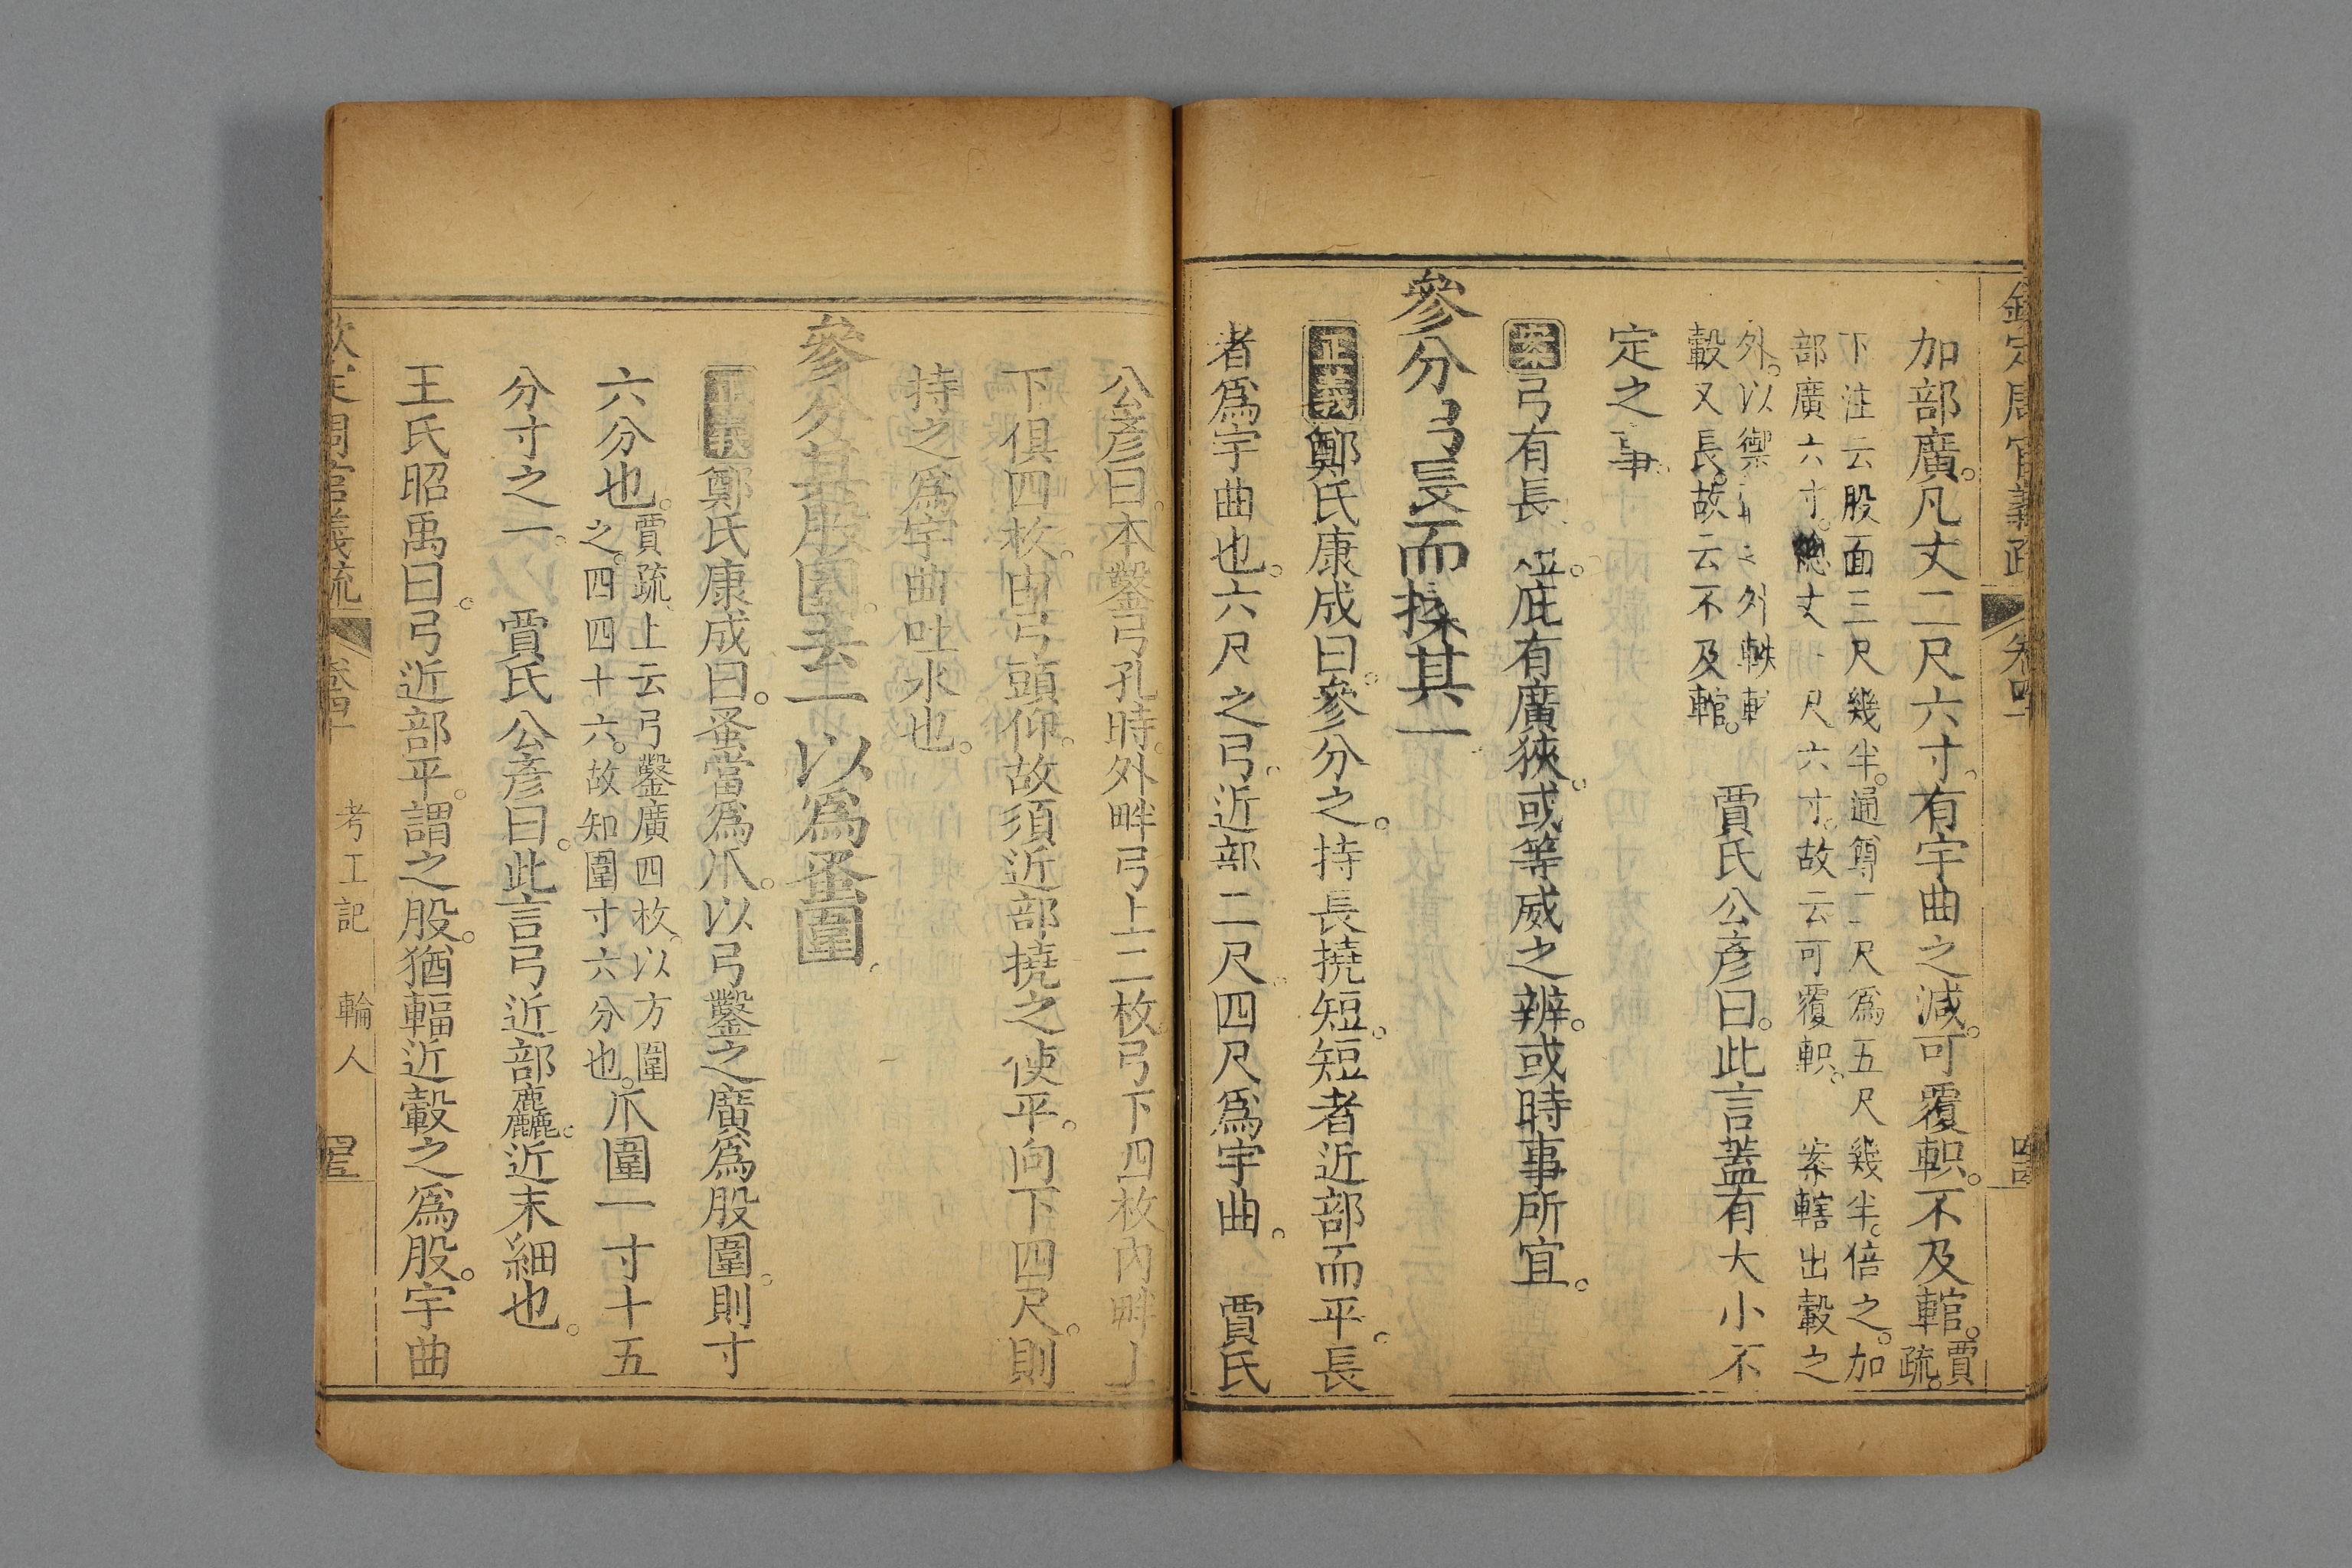 欽定周官義疏 卷四十
加部廣。凡丈二尺六寸。有宇曲之減。可覆軹。不及輨。賈疏。
下注云股面三尺幾半。通尊二尺為五尺幾半。倍之。加
部廣六寸。總丈 尺六寸。故云可覆軹。 案轄出轂之
外。以禦 外軼軎
轂又長。故云不及輨。
賈氏公彥曰。此言蓋有大小不
定之事。
案弓有長短。庇有廣狹。或等威之辨。或時事所宜。
參分弓長而揉其一
正義鄭氏康成曰。參分之。持長撓短。短者近部而平。長
者爲宇曲也。六尺之弓。近部二尺。四尺爲宇曲。 賈氏
公彥曰。本鑿弓孔時。外畔弓上二枚。弓下四枚。內畔上
下俱四枚。由弓頭仰。故須近部撓之使平。向下四尺。則
持之爲宇曲吐水也。
參分其股圍。去一以爲蚤圍
正義鄭氏康成曰。蚤當爲爪。以弓鑿之廣爲股圍。則寸
六分也。
賈疏。上云弓鑿廣四枚。以方圍
之。四四十六。故知圍寸六分也。
爪圍一寸十五
分寸之一。 賈氏公彥曰。此言弓近部麤。近末細也。
王氏昭禹曰。弓近部平。謂之股。猶輻近轂之爲股。宇曲
欽定周官義疏 卷四十 考工記 輪人